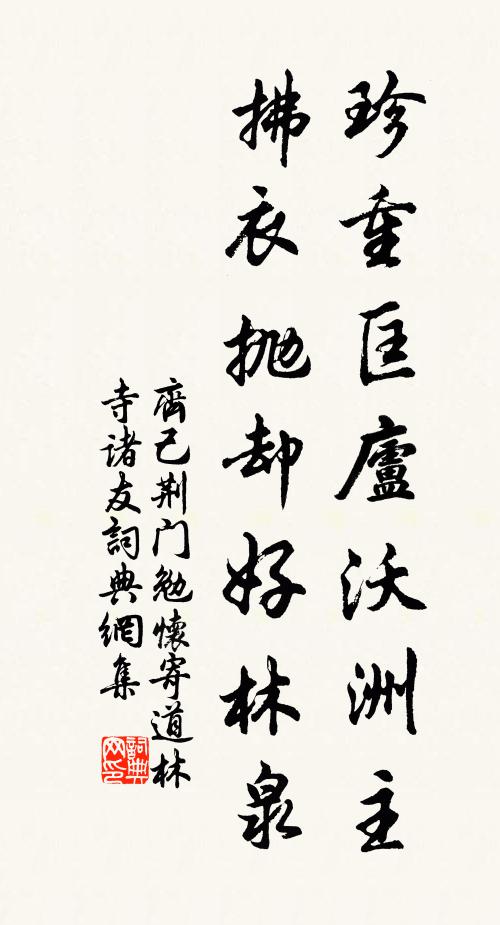 珍重匡廬沃洲主
拂衣抛却好林泉
齊己荆门勉懷寄道林
寺諸友詞典網集
詞典网印